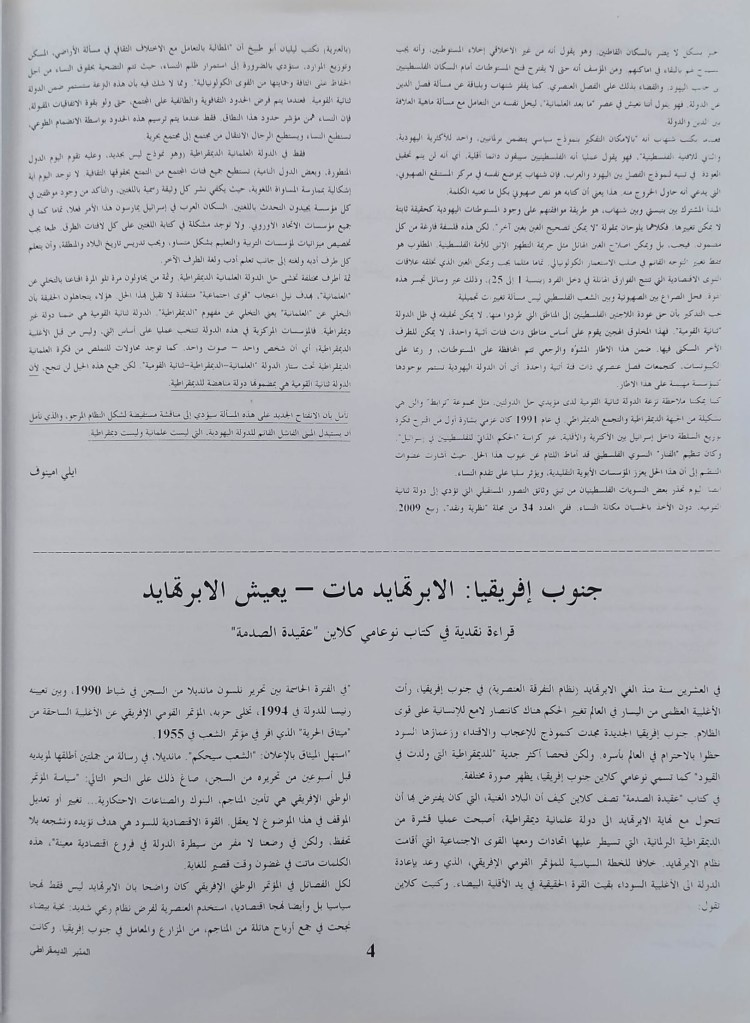 بشكل لا يضر بالسكان القاطنين. وهو يقول أنه من غير الاخلاقي إخلاء المستوطنين، وأنه يجب
لهم بالبقاء في اماكنهم. ومن المؤسف أنه حتى لا يقترح فتح المستوطنات أمام السكان الفلسطينيين
اليهود، والقضاء بذلك على الفصل العنصري. كما يقفز شنهاب وبلباقة عن مسألة فصل الدين
عن الدولة. فهو يقول أننا نعيش في عصر "ما بعد العلمانية"، ليحل نفسه من التعامل مع مسألة ماهية العلاقة
بين الدين والدولة
يكتب شنهاب أنه "بالامكان التفكير بنموذج سياسي يتضمن برلمانين، واحد للأكثرية اليهودية،
والثاني للاقلية الفلسطينية". فهو يقول عمليا أنه الفلسطينيين سيبقون دائما أقلية. أي أنه لن يتم تحقيق
العودة. في تبنيه لنموذج الفصل بين اليهود والعرب، فإن شنهاب يموضع نفسه في مركز المستنقع الصهيوني،
الذي يدعي أنه حاول الخروج منه. هذا يعني أن كتابه هو نص صهيوني بكل ما تعنيه الكلمة.
المبدأ المشترك بين بنيستي وبين شنهاب، هو طريقة موافقتهم على وجود المستوطنات اليهودية كحقيقة ثابتة
لا يمكن تغييرها. فكلاهما يلوحان بمقولة "لا يمكن تصحيح الغبن بغبن آخر". لكن هذه فلسفة فارغة من كل
مضمون. فيجب، بل ويمكن اصلاح الغبن الهائل مثل جريمة التطهير الاثني للأمة الفلسطينية. المطلوب هو
فقط تغيير التوجه القائم في صلب الاستعمار الكولونيالي. تماما مثلما يجب ويمكن الغبن الذي تخلقه علاقات
القوى الاقتصادية التي تنتج الفوارق الهائلة في دخل الفرد (بنسبة 1 إلى 25)، وذلك عبر وسائل تجسر هذه
الهوة. فحل الصراع بين الصهيونية وبين الشعب الفلسطيني ليس مسألة تغييرات تجميلية
يجب التذكير بأن حق عودة اللاجئين الفلسطينيين إلى المناطق التي طردوا منها، لا يمكن تحقيقه في ظل الدولة
"ثنائية القومية". فهذا المخلوق الهجين يقوم على أساس مناطق ذات فئات أثنية واحدة، لا يمكن للطرف
الآخر السكنى فيها. ضمن هذا الاطار المشوّه والرجعي تتم المحافظة على المستوطنات، و ربما على
الكيبوتسات، كتجمعات فصل عنصري ذات فئة أثنية واحدة. أي أن الدولة اليهودية تستمر بوجودها
كمؤسسة مهيمنة على هذا الاطار
كما يمكننا ملاحظة نزعة الدولة ثنائية القومية لدى مؤيدي حل الدولتين. مثل مجموعة "ترابط" والتي هي
تشكيلة من الجبهة الديمقراطية والتجمع الديمقراطي. في عام 1991 كان عزمي بشارة أول من اقترح فكرة
توزيع السلطة داخل إسرائيل بين الأكثرية والأقلية، عبر كراسة "الحكم الذاتي للفلسطينيين في إسرائيل".
وكان تنظيم "الفنار" النسوي الفلسطيني قد أماط اللثام عن عيوب هذا الحل حيث أشارت عضوات
التنظيم إلى أن هذا الحل يعزز المؤسسات الأبوية التقليدية، ويؤثر سلبا على تقدم النساء.
أيضا اليوم تحذر بعض النسويات الفلسطينيات من تبني وثائق التصور المستقبلي التي تؤدي إلى دولة ثنائية
القومية، دون الأخذ بالحسبان مكانة النساء. ففي العدد 34 من مجلة "نظرية ونقد"، ربيع 2009،
(بالعبرية) تكتب ليليان أبو طبيخ أن "المطالبة بالتعامل مع الاختلاف الثقافي في مسألة الأراضي، المسكن
وتوزيع الموارد، ستؤدي بالضرورة إلى استمرار ظلم النساء، حيث تتم التضحية بحقوق النساء من اجل
الحفاظ على الثقافة وحمايتها من القوى الكولونيالية". ومما لا شك فيه بأن هذه النزعة ستستمر ضمن الدولة
ثنائية القومية. فعندما يتم فرض الحدود الثقافوية والطائفية على المجتمع، حتى ولو بقوة الاتفاقيات المقبولة،
فإن النساء هن مؤشر حدود هذا النطاق. فقط عندما يتم ترسيم هذه الحدود بواسطة الانضمام الطوعي،
تستطيع النساء ويستطيع الرجال الانتقال من مجتمع إلى مجتمع بحرية
فقط في الدولة العلمانية الديمقراطية (وهو نموذج ليس بجديد، وعليه تقوم اليوم الدول
المتطورة، وبعض الدول النامية) تستطيع جميع فئات المجتمع من التمتع بحقوقها الثقافية. لا توجد اليوم اية
إشكالية بممارسة المساواة اللغوية، حيث يكفي نشر كل وثيقة رسمية باللغتين، والتأكد من وجود موظفين في
كل مؤسسة يجيدون التحدث باللغتين. السكان العرب في إسرائيل يمارسون هذا الأمر فعلا، تماما كما في
جميع مؤسسات الاتحاد الاوروبي. ولا توجد مشكلة في كتابة اللغتين على كل لافتات الطرق. طبعا يجب
تخصيص ميزانيات لمؤسسات التربية والتعليم بشكل متساو، ويجب تدريس تاريخ البلاد والمنطقة، وأن يتعلم
كل طرف أدبه ولغته إلى جانب تعلم أدب ولغة الطرف الآخر.
ثمة أطرف مختلفة تخشى حل الدولة العلمانية الديمقراطية. وثمة من يحاولون مرة تلو المرة اقناعنا بالتخلي عن
"العلمانية"، بهدف نيل اعجاب "قوى اجتماعية" متنفذة لا تقبل بهذا الحل. هؤلاء يتجاهلون الحقيقة بأن
التخلي عن "العلمانية" يعني التخلي عن مفهوم "الديمقراطية". الدولة ثنائية القومية هي ضمنا دولة غير
ديمقراطية. فالمؤسسات المركزية في هذه الدولة تنتخب عمليا على أساس اثني، وليس من قبل الأغلبية
الديمقراطية، أي أن شخص واحد – صوت واحد. كما توجد محاولات للتملص من فكرة العلمانية
الديمقراطية تحت ستار الدولة "العلمانية-الديمقراطية-ثنائية القومية". لكن جميع هذه الحيل لن تنجح، لأن
الدولة ثنائية القومية هي بمضمونها دولة مناهضة للديمقراطية.
نأمل بأن الانفتاح الجديد على هذه المسألة سيؤدي إلى مناقشة مستفيضة لشكل النظام المرجو، والذي نأمل
أن يستبدل المبنى الفاشل القائم للدولة اليهودية، التي ليست علمانية وليست ديمقراطية.
ايلي امينوف
جنوب إفريقيا: الابرتهايد مات – يعيش الابرتهايد
قراءة نقدية في كتاب نوعامي كلاين "عقيدة الصدمة"
في العشرين سنة منذ الغي الابرتهايد (نظام التفرقة العنصرية) في جنوب إفريقيا، رأت
الأغلبية العظمى من اليسار في العالم تغيير الحكم هناك كانتصار لامع للإنسانية على قوى
الظلام. جنوب إفريقيا الجديدة مجدت كنموذج للإعجاب والاقتداء وزعمازها السود
حظوا بالاحترام في العالم بأسره. ولكن فحصا أكثر جدية "للديمقراطية التي ولدت في
القيود" كما تسمي نوعامي كلاين جنوب إفريقيا، يظهر صورة مختلفة.
في كتاب "عقيدة الصدمة" تصف كلاين كيف أن البلاد الغنية، التي كان يفترض بها أن
تتحول مع نهاية الابرتهايد الى دولة علمانية ديمقراطية، أصبحت عمليا قشرة من
الديمقراطية البرلمانية، التي تسيطر عليها اتحادات ومعها القوى الاجتماعية التي أقامت
نظام الابرتهايد. خلافا للخطة السياسية للمؤتمر القومي الإفريقي، الذي وعد بإعادة
الدولة الى الأغلبية السوداء بقيت القوة الحقيقية في يد الأقلية البيضاء. وكتبت كلاين
تقول:
"في الفترة الحاسمة بين تحرير نلسون مانديلا من السجن في شباط 1990، وبين تعيينه
رئيسا للدولة في 1994، تخلى حزبه، المؤتمر القومي الإفريقي عن الأغلبية الساحقة من
"ميثاق الحرية" الذي اقر في مؤتمر الشعب في 1955.
"استهل الميثاق بالإعلان: "الشعب سيحكم". مانديلا، في رسالة من جملتين أطلقها لمؤيديه
قبل أسبوعين من تحريره من السجن، صاغ ذلك على النحو التالي: "سياسة المؤتمر
الوطني الإفريقي هي تأمين المناجم، البنوك والصناعات الاحتكارية... تغيير أو تعديل
الموقف في هذا الموضوع لا يعقل. القوة الاقتصادية للسود هي هدف نؤيده ونشجعه بلا
تحفظ، ولكن في وضعنا لا مفر من سيطرة الدولة في فروع اقتصادية معينة"، هذه
الكلمات ماتت في غضون وقت قصير للغاية.
لكل الفصائل في المؤتمر الوطني الإفريقي كان واضحا بان الابرتهايد ليس فقط نهجا
سياسيا بل وأيضا نهجا اقتصاديا، استخدم العنصرية لفرض نظام ربحي شديد: نخبة بيضاء
نجحت في جمع أرباح هائلة من المناجم، من المزارع والمعامل في جنوب إفريقيا. وكانت
4
المنبر الديمقراطي